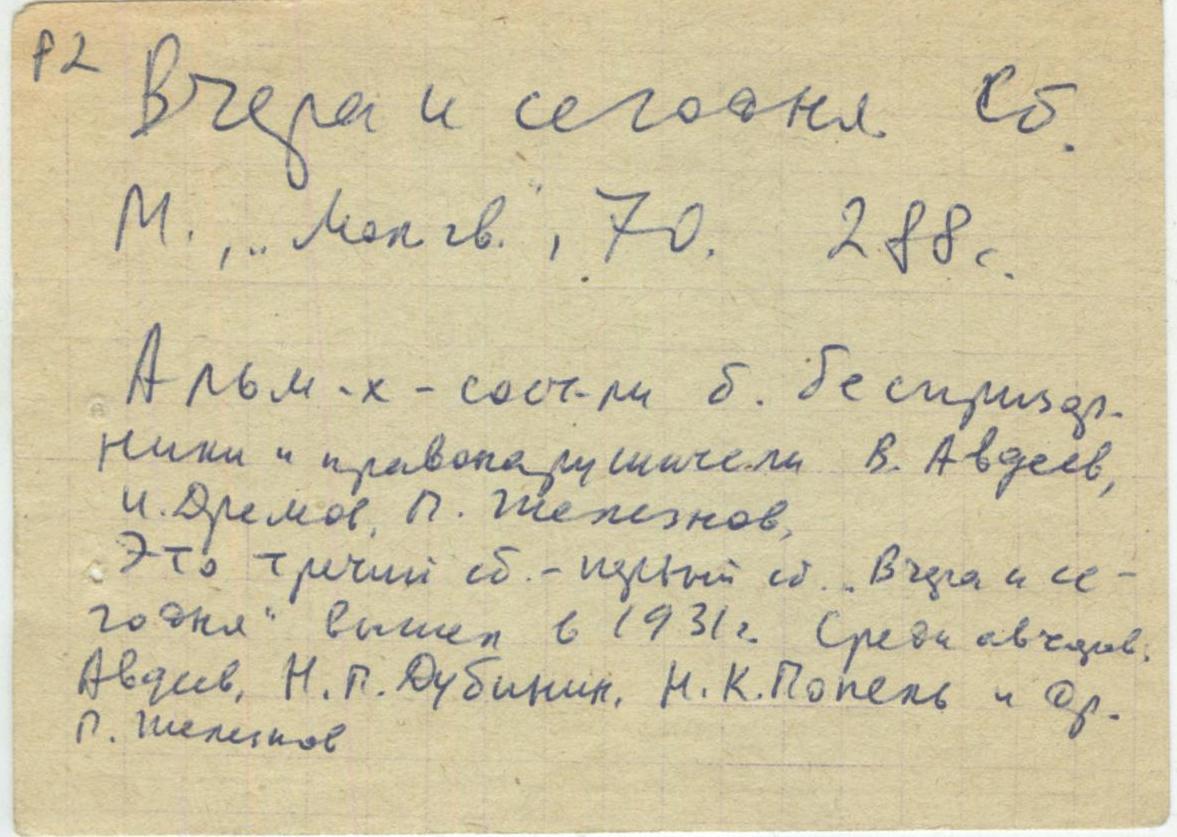 Р2
Вчера и сегодня Сб.
М., „Мол гв.", 70. 288 с.
Альм-х - сост-ли б. беспризор-
ники и правонарушители В. Авдеев,
И. Дремов, П. Железнов,
Это третий сб. - первый сб. „Вчера и се-
годня" вышел в 1931 г. Среди авторов.
Авдеев, Н. П. Дубинин, Н. К. Попель и др.
П. Железнов